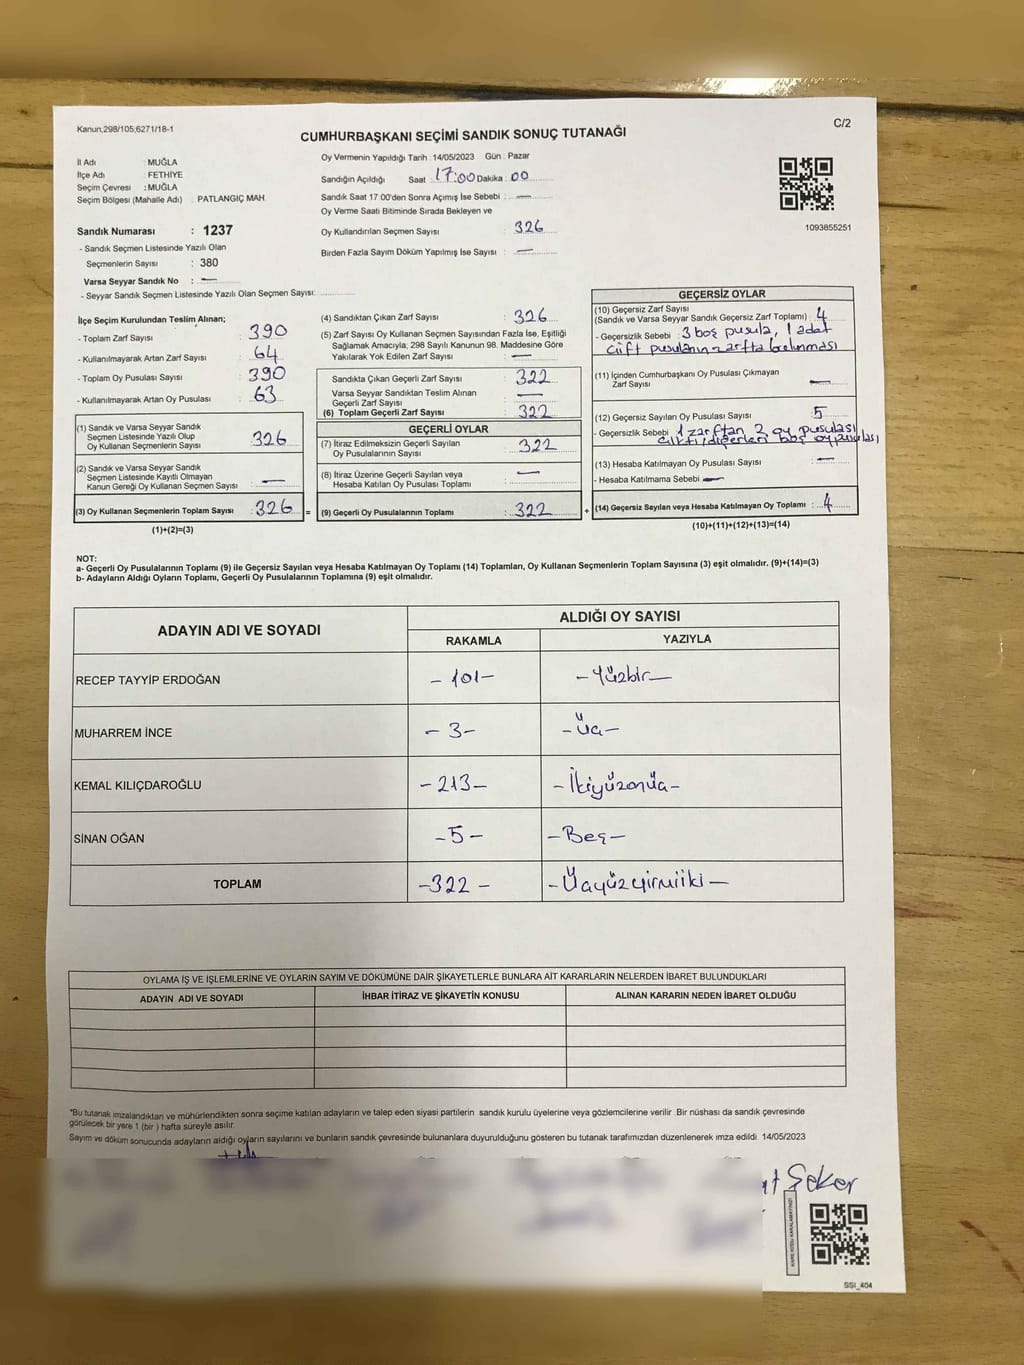 Kanun;298/105;6271/18-1
C/2
CUMHURBAŞKANI SEÇİMİ SANDIK SONUÇ TUTANAĞI
İl Adı : MUĞLA
İlçe Adı : FETHİYE
Seçim Çevresi : MUĞLA
Seçim Bölgesi (Mahalle Adı) : PATLANGIÇ MAH.
Sandık Numarası : 1237
- Sandık Seçmen Listesinde Yazılı Olan
Seçmenlerin Sayısı : 380
Varsa Seyyar Sandık No : —
- Seyyar Sandık Seçmen Listesinde Yazılı Olan Seçmen Sayısı:
Oy Vermenin Yapıldığı Tarih : 14/05/2023 Gün : Pazar
Sandığın Açıldığı Saat : 17:00 Dakika : 00
Sandık Saat 17:00'den Sonra Açımış İse Sebebi : —
Oy Verme Saati Bitiminde Sırada Bekleyen ve
Oy Kullandırılan Seçmen Sayısı : 326
Birden Fazla Sayım Döküm Yapılmış İse Sayısı : —
1093855251
İlçe Seçim Kurulundan Teslim Alınan;
- Toplam Zarf Sayısı : 390
- Kullanılmayarak Artan Zarf Sayısı : 64
- Toplam Oy Pusulası Sayısı : 390
- Kullanılmayarak Artan Oy Pusulası : 63
(1) Sandık ve Varsa Seyyar Sandık
Seçmen Listesinde Yazılı Olup
Oy Kullanan Seçmenlerin Sayısı : 326
(2) Sandık ve Varsa Seyyar Sandık
Seçmen Listesinde Kayıtlı Olmayan
Kanun Gereği Oy Kullanan Seçmen Sayısı : —
(3) Oy Kullanan Seçmenlerin Toplam Sayısı : 326 =
(1)+(2)=(3)
(4) Sandıktan Çıkan Zarf Sayısı : 326
(5) Zarf Sayısı Oy Kullanan Seçmen Sayısından Fazla İse, Eşitliği
Sağlamak Amacıyla; 298 Sayılı Kanunun 98. Maddesine Göre
Yakılarak Yok Edilen Zarf Sayısı : —
Sandıkta Çıkan Geçerli Zarf Sayısı : 322
Varsa Seyyar Sandıktan Teslim Alınan
Geçerli Zarf Sayısı : —
(6) Toplam Geçerli Zarf Sayısı : 322
GEÇERLİ OYLAR
(7) İtiraz Edilmeksizin Geçerli Sayılan
Oy Pusulalarının Sayısı : 322
(8) İtiraz Üzerine Geçerli Sayılan veya
Hesaba Katılan Oy Pusulası Toplamı : —
(9) Geçerli Oy Pusulalarının Toplamı : 322 +
GEÇERSİZ OYLAR
(10) Geçersiz Zarf Sayısı
(Sandık ve Varsa Seyyar Sandık Geçersiz Zarf Toplamı) : 4
- Geçersizlik Sebebi : 3 boş pusula, 1 adet
çift pusulanın zarfta bulunması
(11) İçinden Cumhurbaşkanı Oy Pusulası Çıkmayan
Zarf Sayısı —
(12) Geçersiz Sayılan Oy Pusulası Sayısı : 5
- Geçersizlik Sebebi 1 zarftan 2 oy pusulası
çıktı/diğerleri boş oy pusulası
(13) Hesaba Katılmayan Oy Pusulası Sayısı : —
- Hesaba Katılmama Sebebi —
(14) Geçersiz Sayılan veya Hesaba Katılmayan Oy Toplamı : 4
(10)+(11)+(12)+(13)=(14)
NOT:
a- Geçerli Oy Pusulalarının Toplamı (9) ile Geçersiz Sayılan veya Hesaba Katılmayan Oy Toplamı (14) Toplamları, Oy Kullanan Seçmenlerin Toplam Sayısına (3) eşit olmalıdır. (9)+(14)=(3)
b- Adayların Aldığı Oyların Toplamı, Geçerli Oy Pusulalarının Toplamına (9) eşit olmalıdır.
ADAYIN ADI VE SOYADI ALDIĞI OY SAYISI
RAKAMLA YAZIYLA
RECEP TAYYİP ERDOĞAN - 101 - - Yüzbir -
MUHARREM İNCE - 3 - - Üç -
KEMAL KILIÇDAROĞLU - 213 - - İkiyüzonüç -
SİNAN OĞAN - 5 - - Beş -
TOPLAM - 322 - - Üçyüzyirmiiki -
OYLAMA İŞ VE İŞLEMLERİNE VE OYLARIN SAYIM VE DÖKÜMÜNE DAİR ŞİKAYETLERLE BUNLARA AİT KARARLARIN NELERDEN İBARET BULUNDUKLARI
ADAYIN ADI VE SOYADI İHBAR İTİRAZ VE ŞİKAYETİN KONUSU ALINAN KARARIN NEDEN İBARET OLDUĞU
*Bu tutanak imzalandıktan ve mühürlendikten sonra seçime katılan adayların ve talep eden siyasi partilerin sandık kurulu üyelerine veya gözlemcilerine verilir. Bir nüshası da sandık çevresinde
görülecek bir yere 1 (bir ) hafta süreyle asılır.
Sayım ve döküm sonucunda adayların aldığı oyların sayılarını ve bunların sandık çevresinde bulunanlara duyurulduğunu gösteren bu tutanak tarafımızdan düzenlenerek imza edildi. 14/05/2023
Şeker
SSI_404